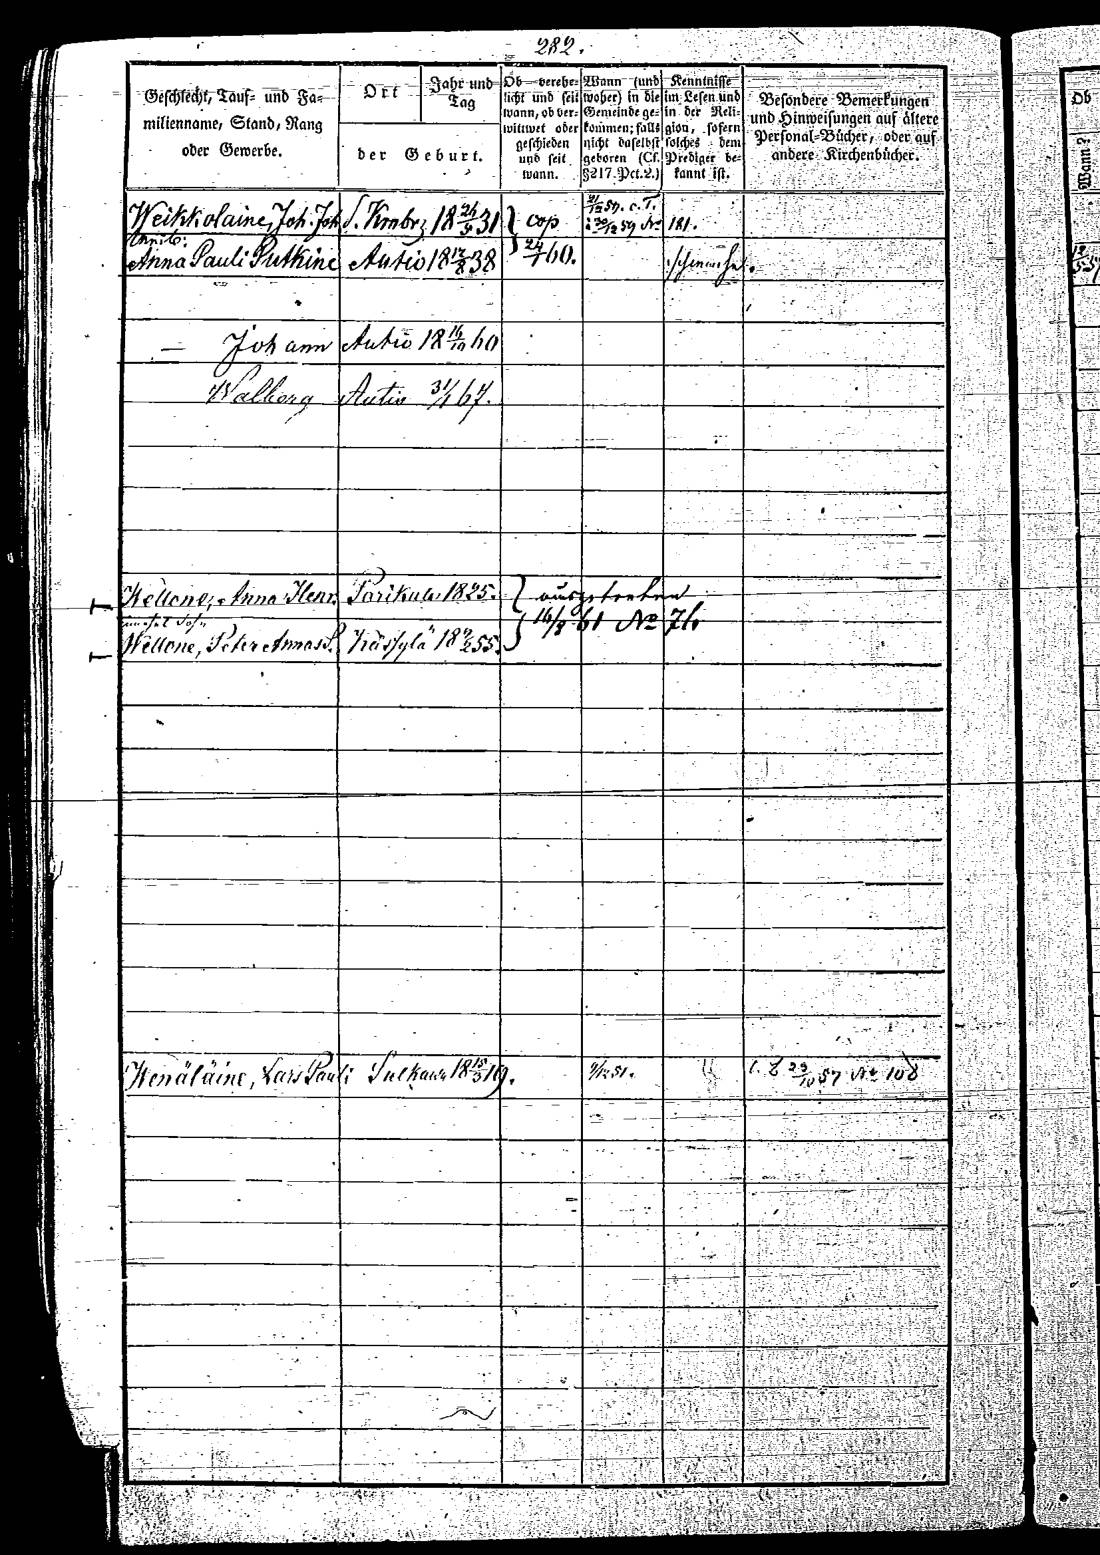 282.
Geschlecht, Tauf- und Fa-
milienname, Stand, Rang
oder Gewerbe.
Ort
Jahr und
Tag
der Geburt.
Ob verehe-
licht und seit
wann, ob ver-
wittwet oder
geschieden
und seit
wann.
Wann (und
woher) in die
Gemeinde ge-
kommen; falls
nicht daselbst
geboren (Cf.
§217. Pct.2.)
Kenntnisse
im Lesen und
in der Reli-
gion, sofern
solches dem
Prediger be-
kannt ist.
Besondere Bemerkungen
und Hinweisungen auf ältere
Personal-Bücher, oder auf
andere Kirchenbücher.
Ob
Wann?
Weikkolaine, Joh. Joh. 18 24/5 31 cop 21/12 59. c. T. 30/12 59 No 181.
Anna Pauli Putkine Autio 18 38 24/1 60.
— Johann Autio 18 16/10 60
Walborg Autio 31/1 67.
Wellone, Anna Henr. Parikula 1825. ausgetreten
16/8 61 No 76
Wellone, Peter Annas S. 18 55.
Wenäläine, Lars Pauli Sulkawa 18 15/3 19. 51. 23/10 57 No 108